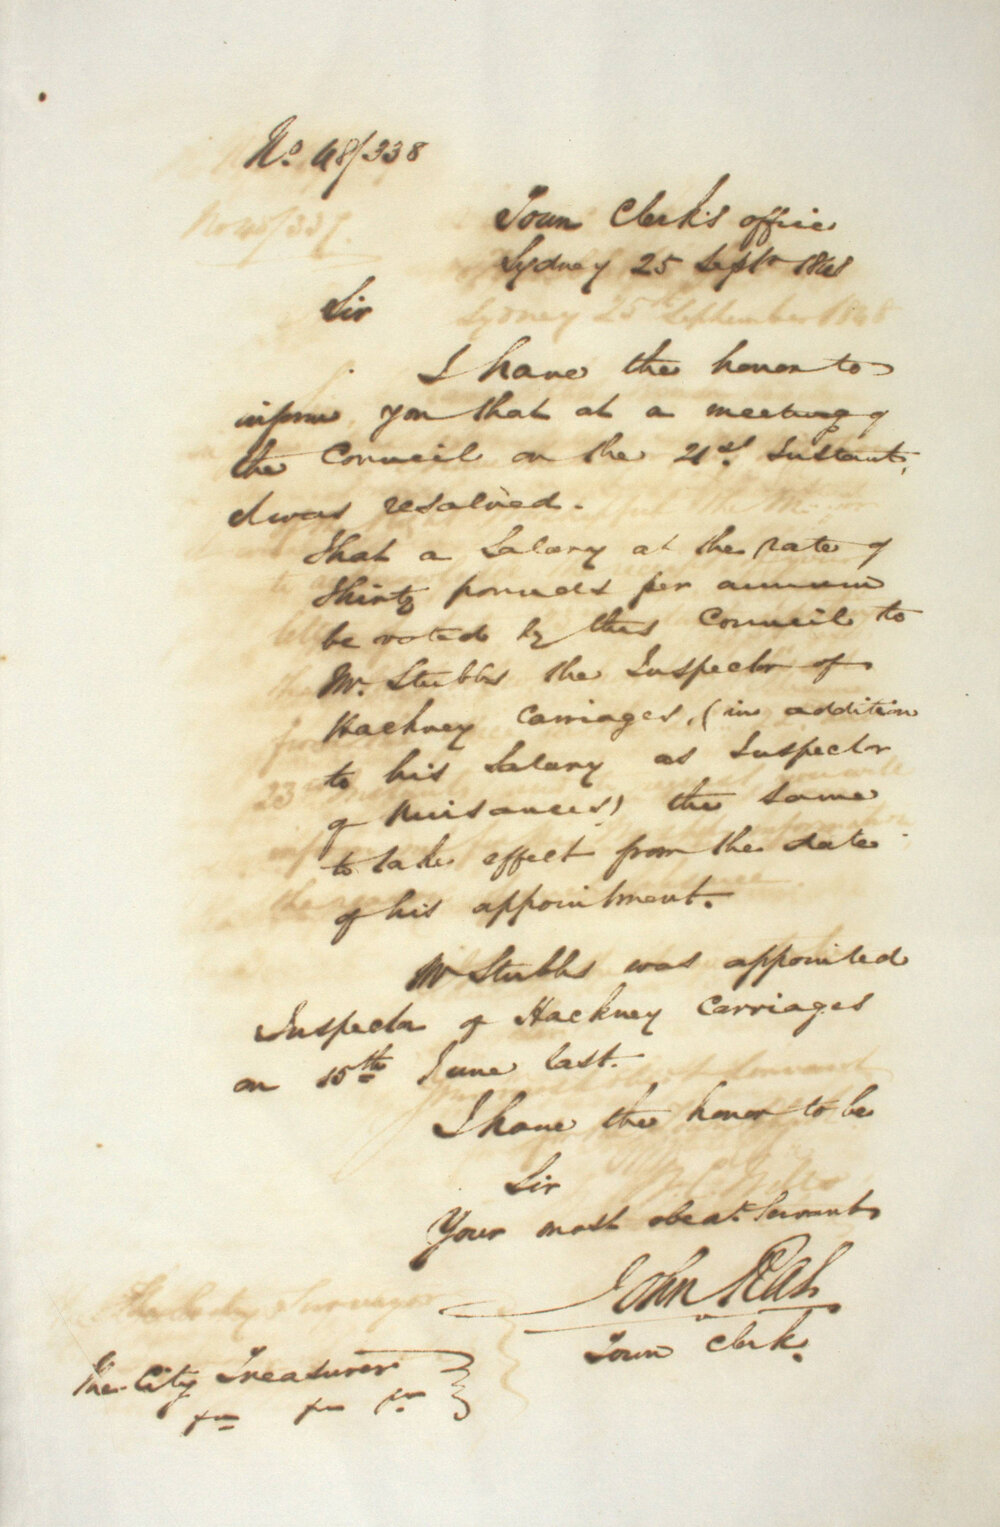 No. 48/338
Town Clerk's office
Sydney 25 Septr 1848
Sir
I have the honor to
inform you that at a meeting of
the Council on the 21st. Instant,
it was resolved.
That a Salary at the rate of
Thirty pounds per annum
be voted by this Council to
Mr. Stubbs the Inspector of
Hackney Carriages, (in addition
to his Salary as Inspector
of Nuisances) the same
to take effect from the date
of his appointment.
Mr Stubbs was appointed
Inspector of Hackney Carriages
on 15th June last.
I have the honor to be
Sir
Your most obedt. Servant
John Rae
Town Clerk.
The City Treasurer